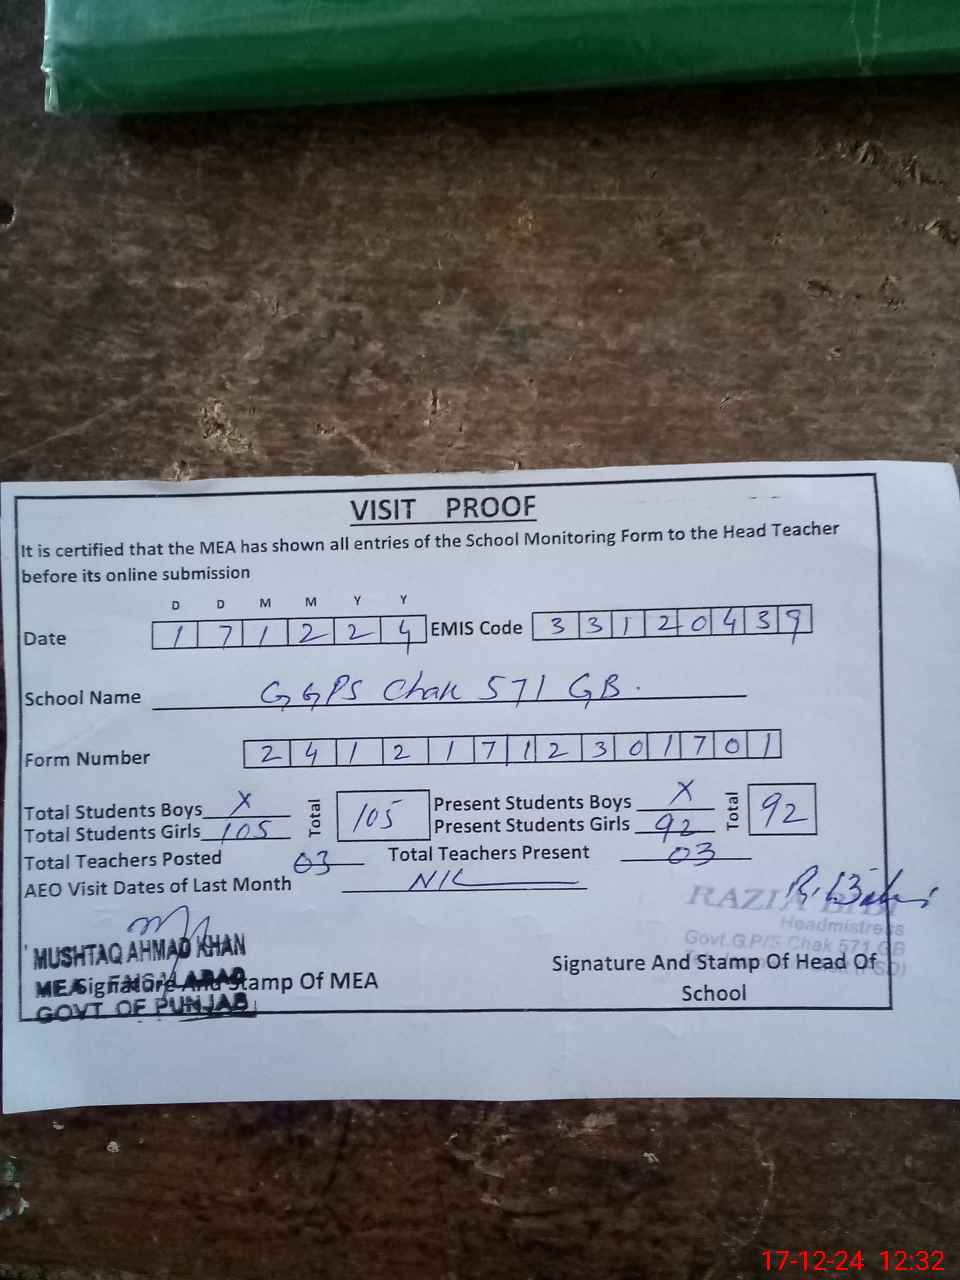 VISIT PROOF
It is certified that the MEA has shown all entries of the School Monitoring Form to the Head Teacher
before its online submission
D D M M Y Y
Date 1 7 1 2 2 4 EMIS Code 3 3 1 2 0 4 3 9
School Name GGPS Chak 571 GB.
Form Number 2 4 1 2 1 7 1 2 3 0 1 7 0 1
Total Students Boys X Total 105 Present Students Boys X Total 92
Total Students Girls 105 Present Students Girls 92
Total Teachers Posted 03 Total Teachers Present 03
AEO Visit Dates of Last Month NIL
RAZIA BIBI
Headmistress
Govt.G.P/S Chak 571 GB
MUSHTAQ AHMAD KHAN
MEA FAISALABAD
GOVT OF PUNJAB
Signature And Stamp Of MEA
Signature And Stamp Of Head Of
School
17-12-24 12:32